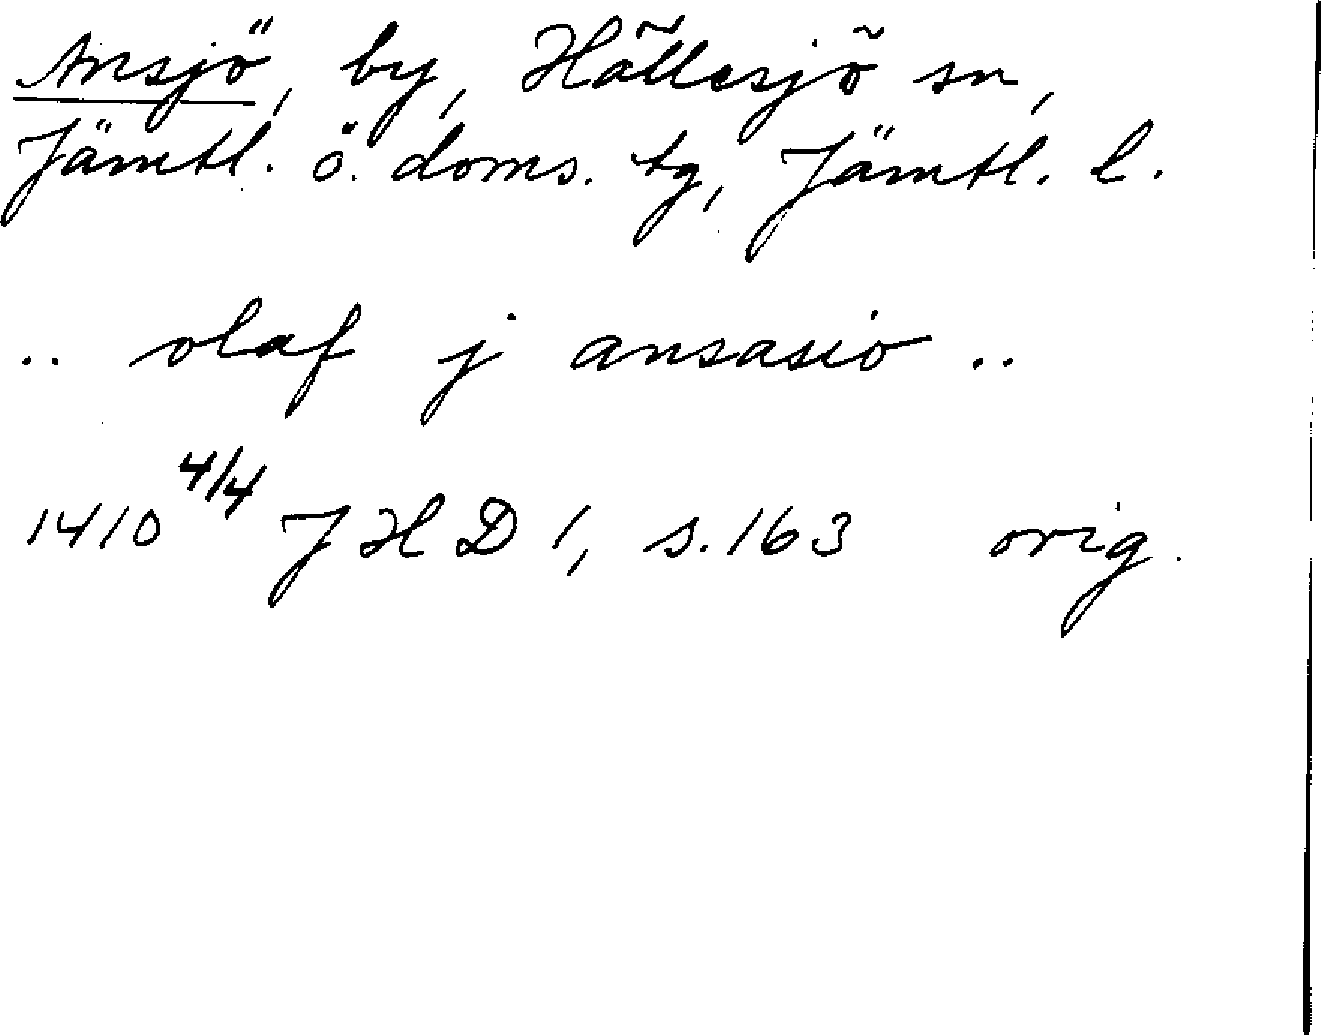 Ansjö, by, Hällesjö sn,
Jämtl. ö. doms. tg, Jämtl. l.
.. olaf j ansasio ..
1410 4/4 JHD 1, s. 163 orig.